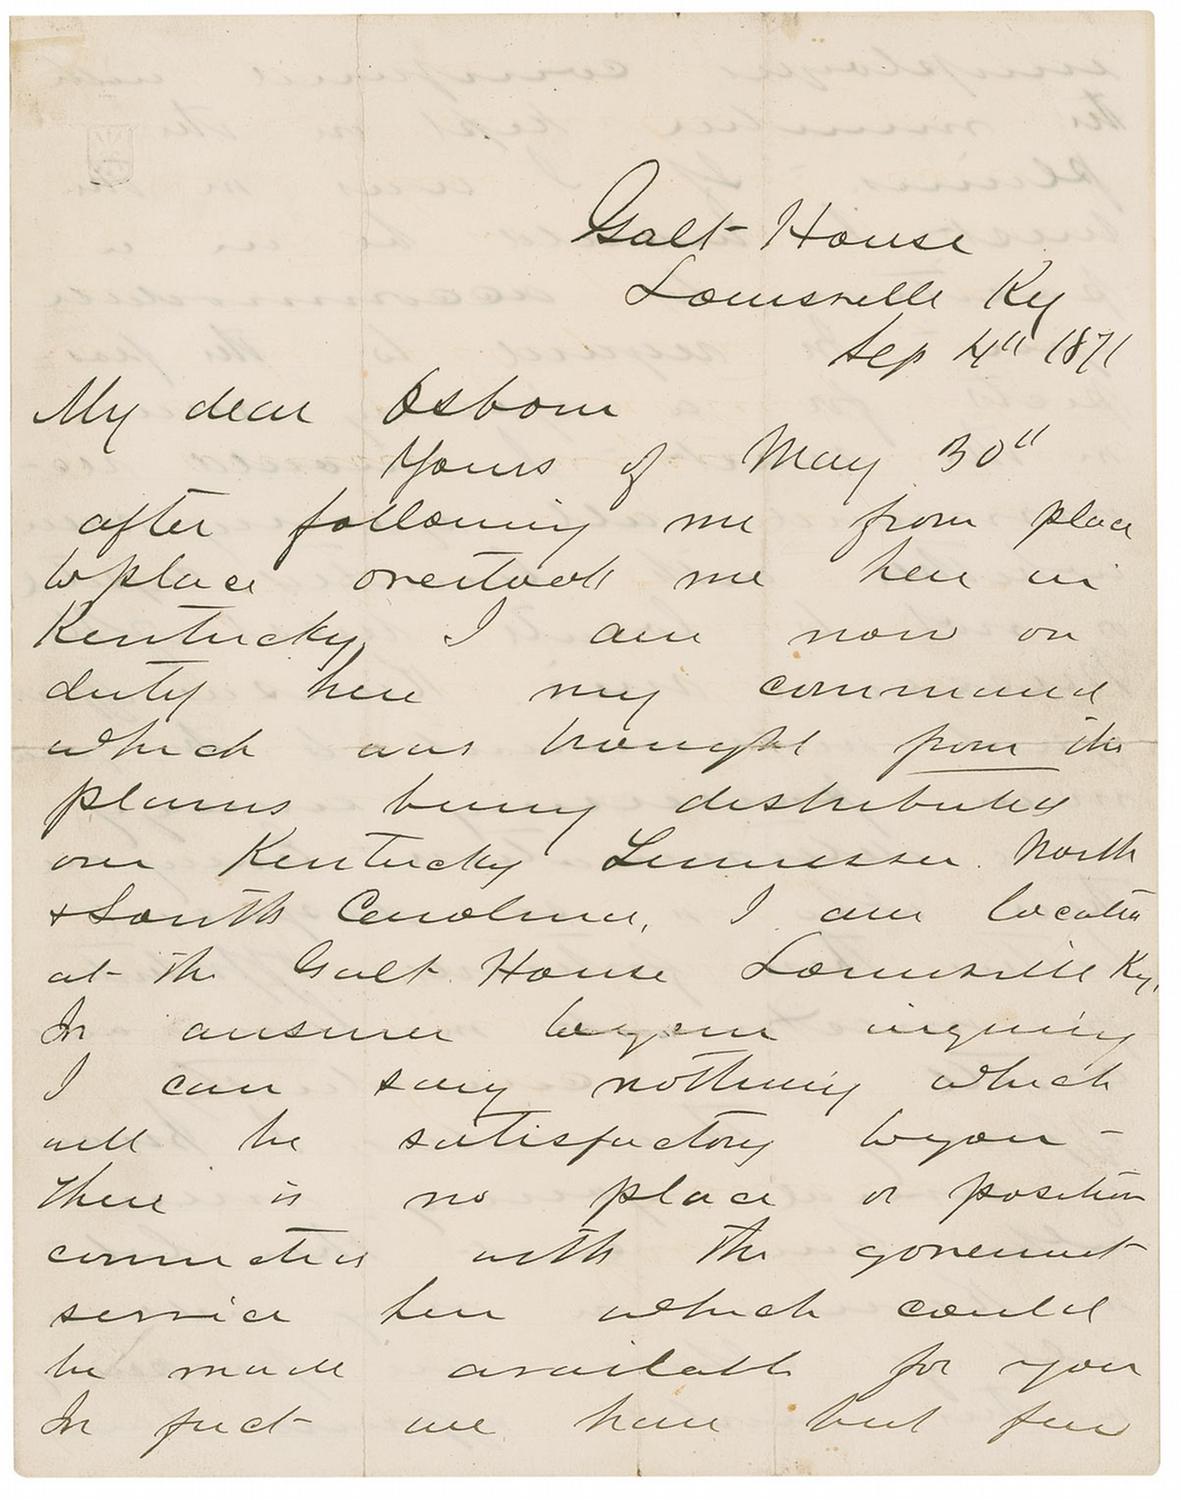 Galt House
Louisville Ky
Sep 4" 1871
My dear Osborn
Yours of May 30"
after following me from place
to place overtook me here in
Kentucky, I am now on
duty here my command
which was brought from the
plains being distributed
over Kentucky Tennessee. North
& South Carolina, I am located
at the Galt House Louisville Ky.
In answer to your inquiry
I can say nothing which
will be satisfactory to you -
there is no place or position
connected with the government
service here which could
be made available for you
In fact we have but few